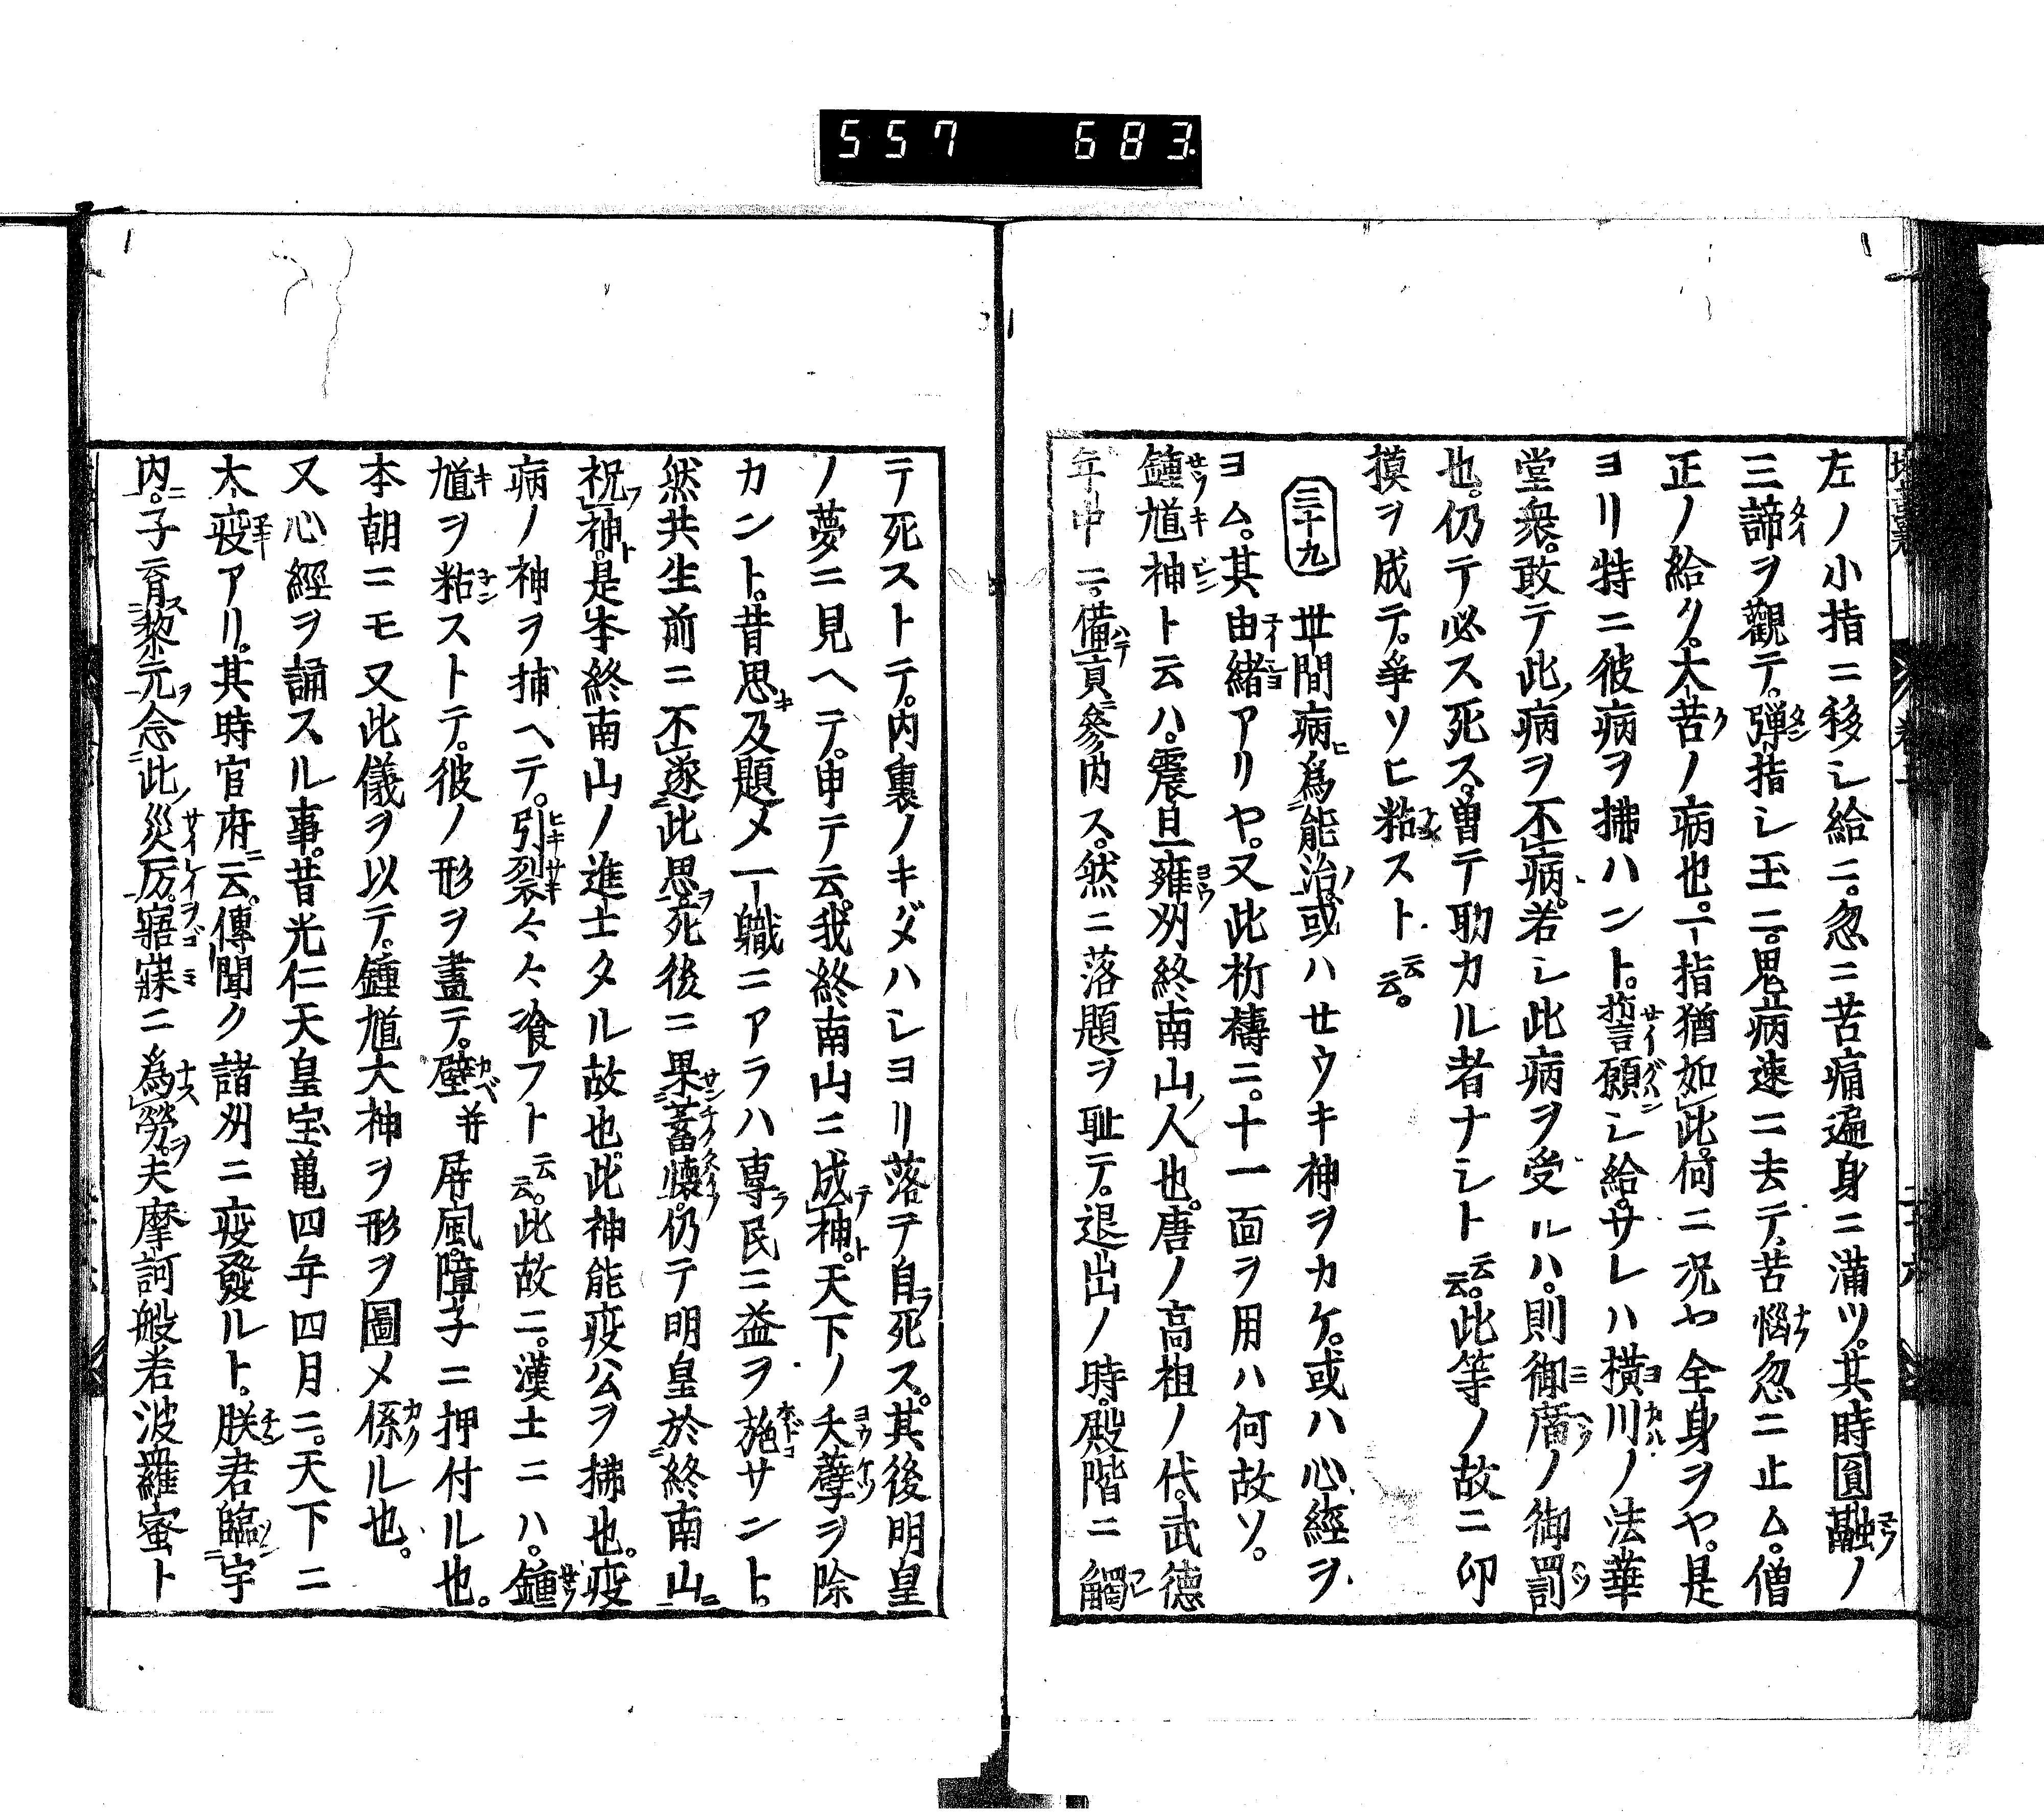 557 683
左ノ小指ニ移シ給ニ。忽ニ苦痛遍身ニ滿ツ。其時圓融ノ
三諦ヲ觀テ。彈指シ玉ニ。鬼病速ニ去テ。苦惱忽ニ止ム。僧
正ノ給ク。大苦ノ病也。一指猶如此。何ニ況ヤ全身ヲヤ。是
ヨリ特ニ彼病ヲ拂ハント。誓願シ給。サレハ横川ノ法華
堂衆。敢テ此病ヲ不病。若シ此病ヲ受ルハ。則御廟ノ御罰
也。仍テ必ス死ス。曽テ助カル者ナシト云云。此等ノ故ニ印
摸ヲ成テ。爭ソヒ粘スト云云。
三十九 世間病爲能治。或ハセウキ神ヲカケ。或ハ心經ヲ
ヨム。其由緒アリヤ。又此祈禱ニ。十一面ヲ用ハ何故ソ。
鍾馗神ト云ハ。震旦雍州終南山人也。唐ノ高祖ノ代。武德
年中ニ。備貢參内ス。然ニ落題ヲ耻テ。退出ノ時。殿階ニ觸
テ死ストテ。内裏ノキダハシヨリ落テ自死ス。其後明皇
ノ夢ニ見ヘテ。申テ云。我終南山ニ成神。天下ノ夭孽ヲ除
カント。昔思及題メ一職ニアラハ專民ニ益ヲ施サント。
然共生前ニ不遂此思。死後ニ果蓄懷。仍テ明皇於終南山
祝神。是本終南山ノ進士タル故也。此神能疫公ヲ拂也。疫
病ノ神ヲ捕ヘテ。引裂々々飡フト云云。此故ニ。漢土ニハ。鍾
馗ヲ粘ストテ。彼ノ形ヲ畫テ。壁并屏風。障子ニ押付ル也。
本朝ニモ又此儀ヲ以テ。鍾馗大神ヲ形ヲ圖メ係ル也。
又心經ヲ誦スル事。昔光仁天皇宝亀四年四月ニ。天下ニ
大疫アリ。其時官府云。傳聞ク諸州ニ疫發ルト。朕君臨宇
内。子育黎元念此災厉。寤寐ニ爲勞。夫摩訶般若波羅蜜ト